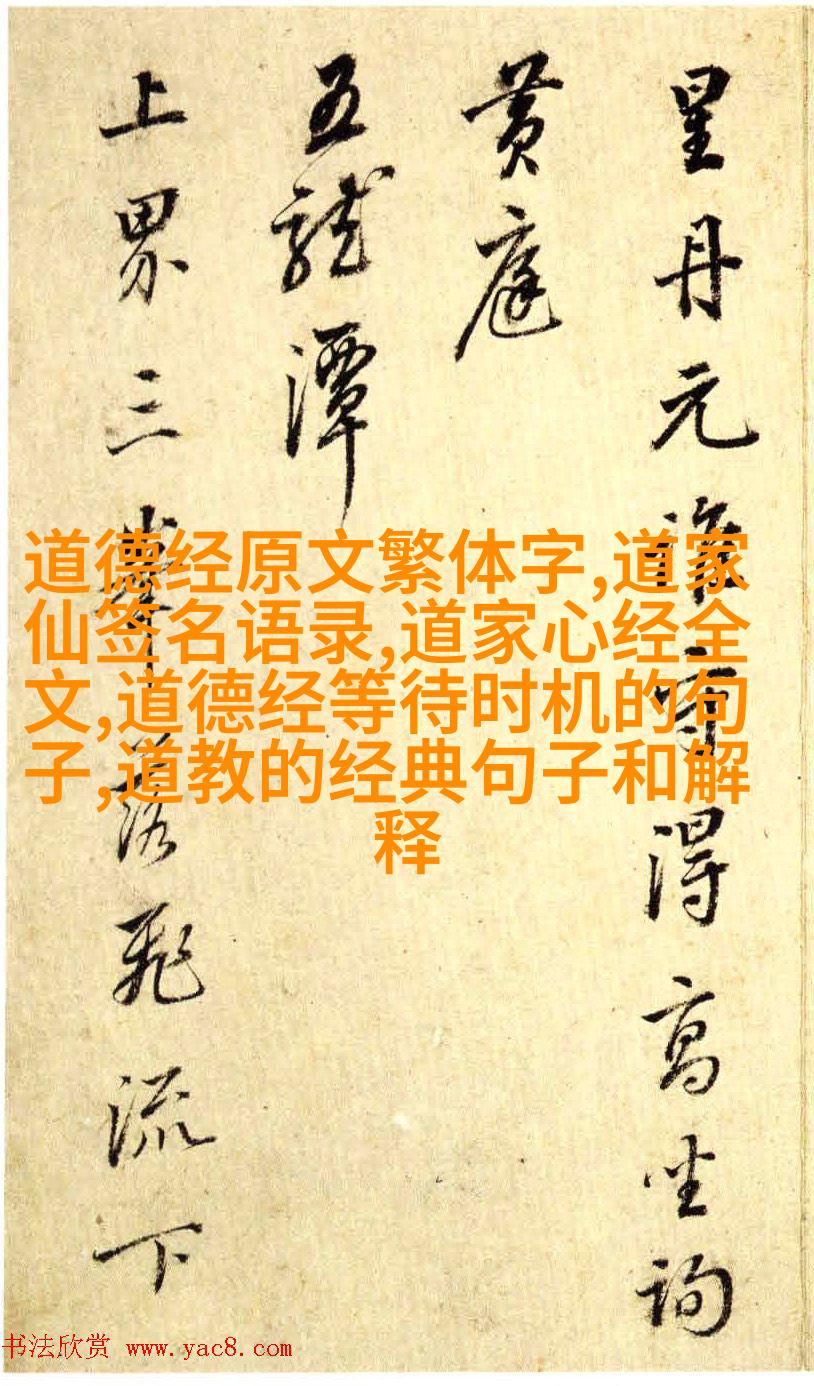 星丹元得高坐詢
黄庭
五龍潭
上界三峯落飛流下
道德经原文繁体字,道家
仙签名语录,道家心经全
文,道德经等待时机的句
子,道教的经典句子和解
释
书法欣赏 www.yac8.com